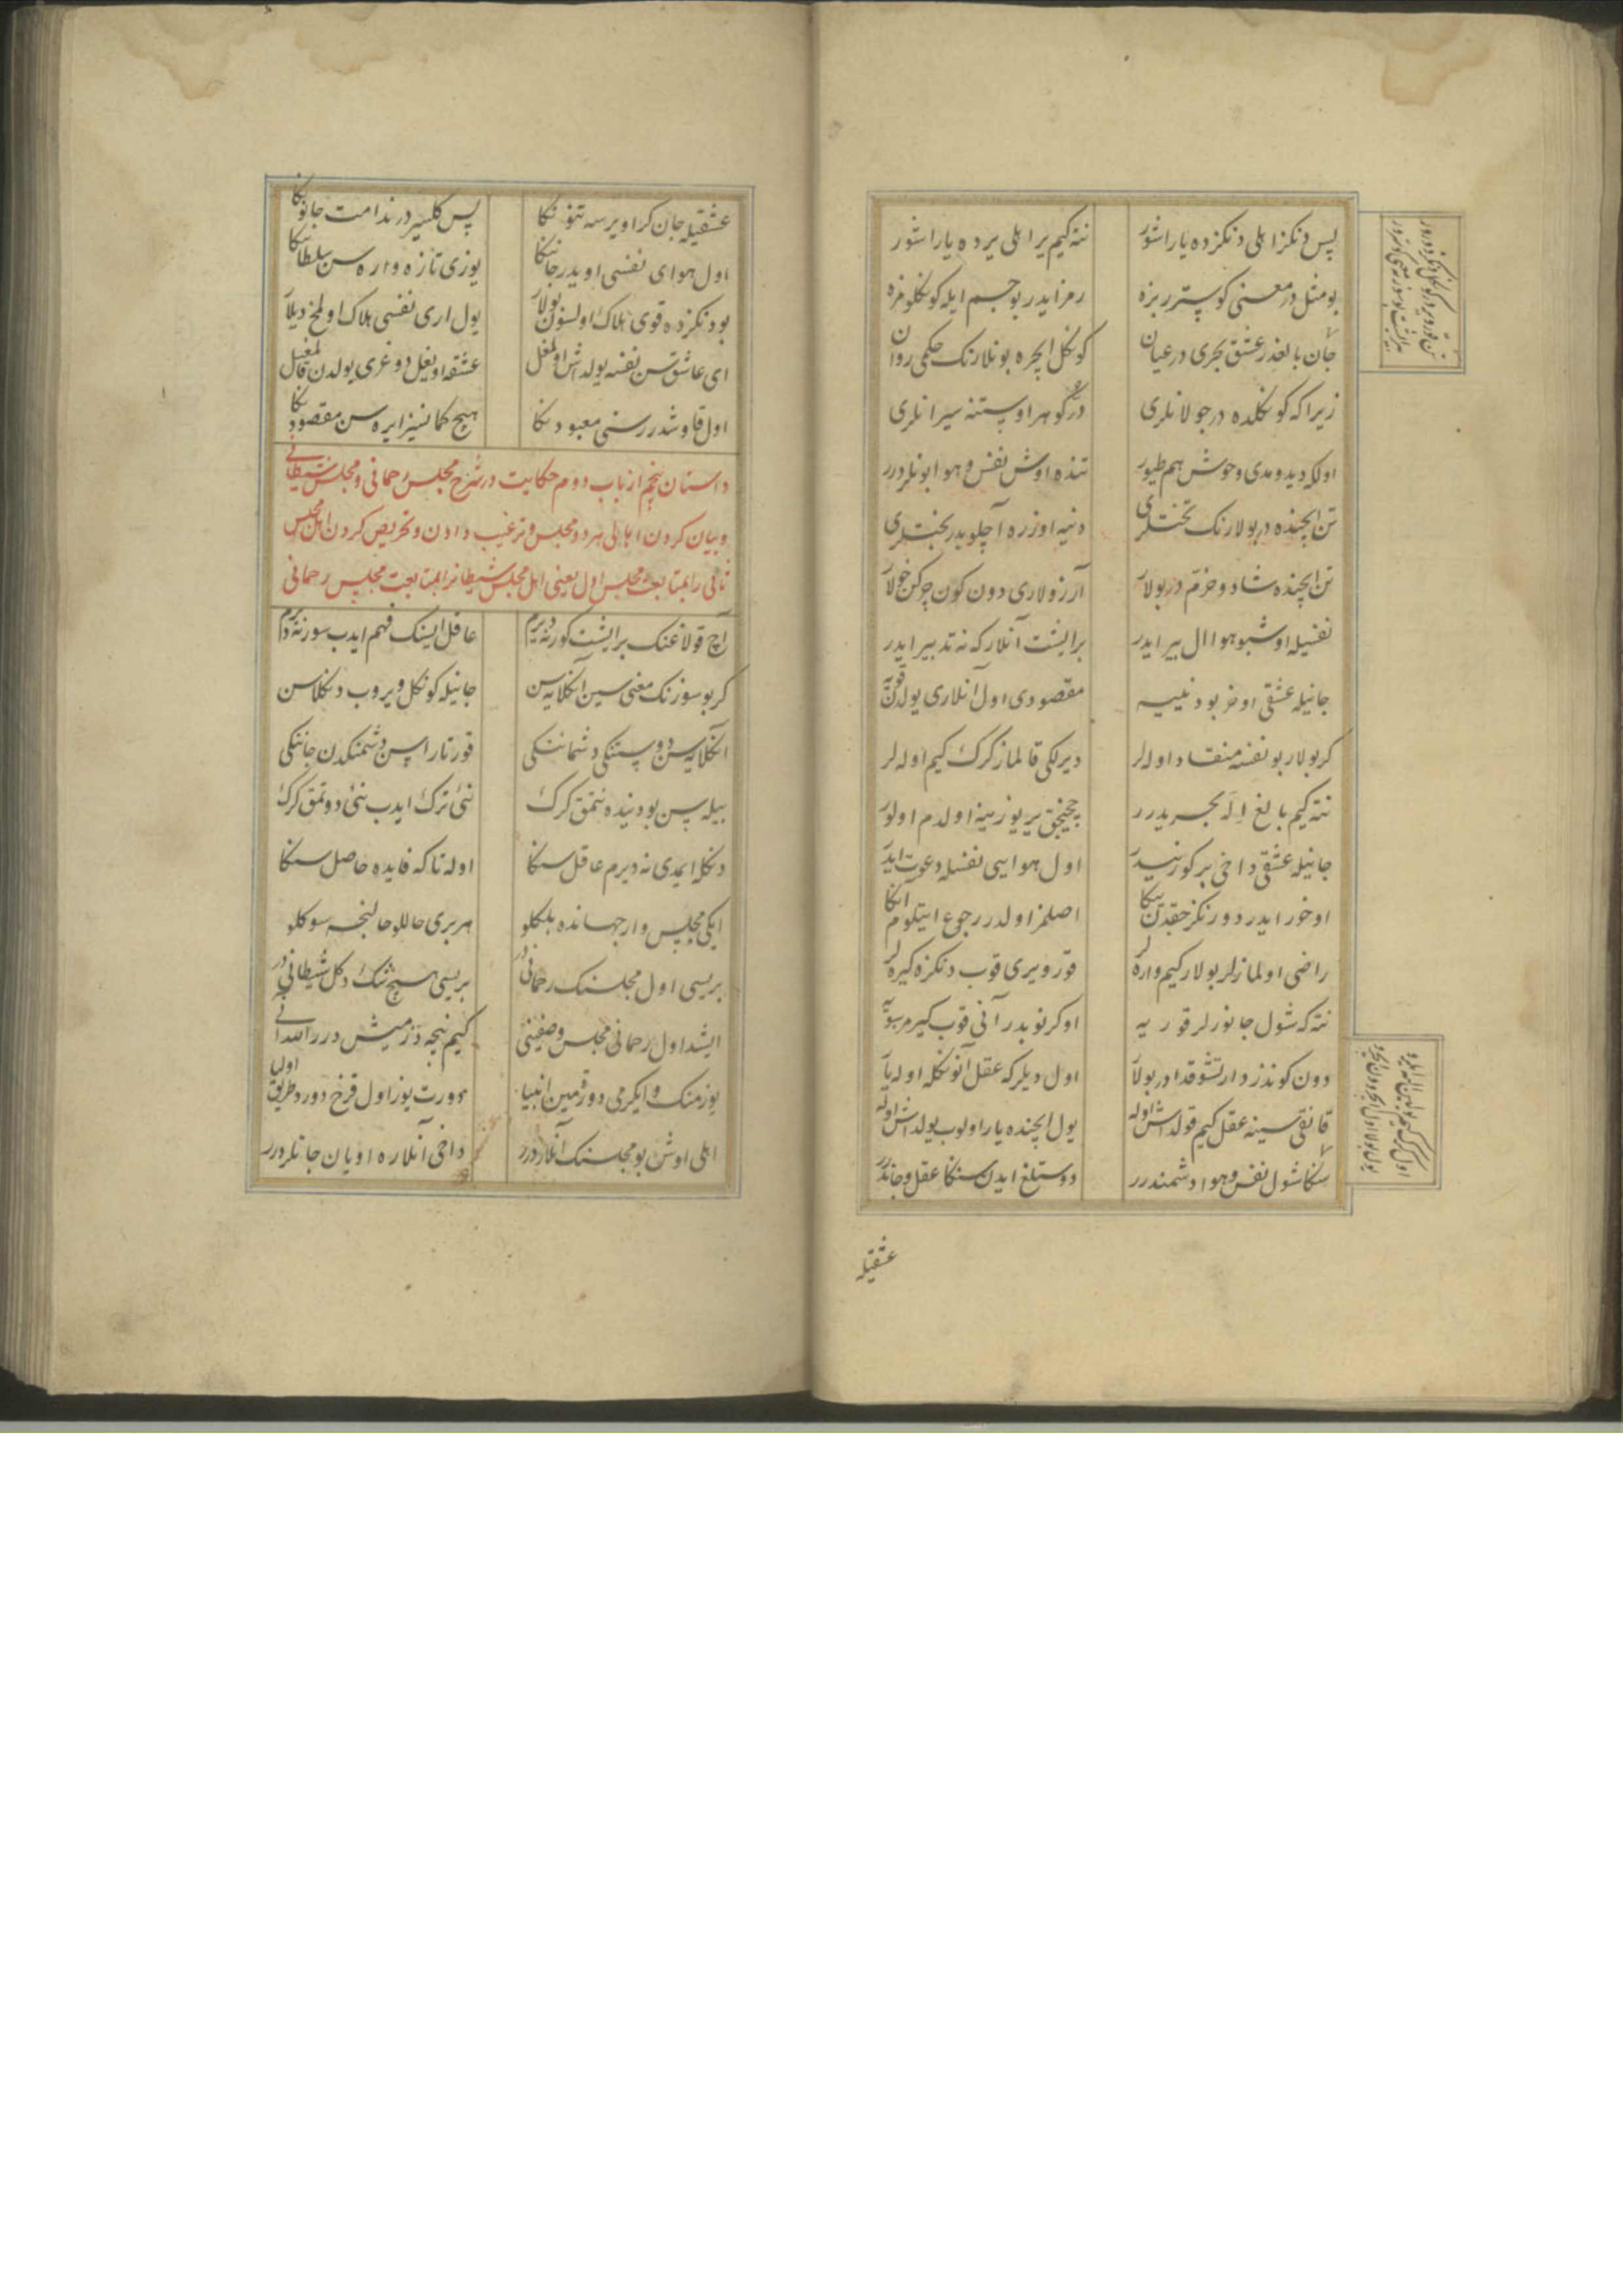 پس دنکز اهلی دنکزده یاراشور نته کیم یر اهلی یرده یاراشور
بو مثل در معنی کوستررر بزه رمز ایدر بو جسم ایله کوکلومزه
جان بالغدر عشق بحری در عیان کوکل ایچره بونلارنک حکمی روان
زیرا که کوکلده در جولانلری در و کوهر اوستنه سیرانلری
اولکه دیدومدی وحوش هم طیور تنده اوش نفس و هوا بونلردرر
تن ایچنده در بولارنک تختلری دنیه اوزره آچلوبدر بختلری
تن ایچنده شاد و خرم در بولار آرزولاری دون کون چرکن خولار
نفسیله اوشبو هوا ال بیر ایدر بر ایشت آنلار که نه تدبیر ایدر
جانیله عشقی اوخر بو دنییه مقصودی اول آنلاری یولدن قویه
کر بولار بو نفسه منقاد اوله لر دیرلکی قالماز کرک کیم اوله لر
نته کیم بالغ اله بحریدرر چیخجق یر یوزینه اولدم اولور
جانیله عشقی داخی بر کورنیدر اول هوایی نفسله دعوت ایدر
اوخور ایدر دورنکز حقدن یکا اصلمز اولدر رجوع ایتلوم آنکا
راضی اولمازلر بولار کیم واره لر قورو یری قوب دنکزه کیره لر
نته که شول جانورلر قورویه اوکرنوبدر آنی قوب کیرمز سویه
دون کوندز دارتشوقدادر بولار اول دیلر که عقل آنونکله اوله یار
قانقی سینه عقل کیم قولداش اوله یول ایچنده یار اولوب یولداش اوله
سکا شول نفس و هوا دشمندرر دوستلغ ایدن سنکا عقل و جاندرر
عشقیله
عشقیله جان کر اویرسه تنونکا پس کلسیر در ندامت جانونکا
اول هوای نفسی اویدر جاننکا یوزی تازه واره سن سلطاننکا
بو دنکزده قوی هلاک اولسون بولار یول اری نفسی هلاک اولمخ دیلار
ای عاشق سن نفسه یولداش اولمغل عشقه اویغل دوغری یولدن قالمغیل
اول قاوشدرر سنی معبودنکا هیچ کمانسیز ایره سن مقصودنکا
داستان پنجم از باب دوم حکایت در شرح مجلس رحمانی و مجلس شیطانی
و بیان کردن اهالی هر دو مجلس و ترغیب دادن و تحریص کردن اهل مجلس
ثانی را بمتابعت مجلس اول یعنی اهل مجلس شیطانرا بمتابعت مجلس رحمانی
آچ قولاغنک بر ایشت کور نه دیرم عاقل ایسنک فهم ایدب سوز نه دیرم
کر بو سوزنک معنی سین آنکلایه سن جانیله کوکل ویروب دنکلاسن
آنکلایه سن دوستنکی دشماننکی قورتاراسن دشمنکدن جاننکی
بیله سن بو دنیده نتمق کرک نئی ترک ایدب نئی دوتمق کرک
دنکله ایمدی نه دیرم عاقل سنکا اوله تا که فایده حاصل سنکا
ایکی مجلس وار جهانده بلکلو هر بری حاللو حالنجه سوکلو
بریسی اول مجلسنک رحمانی در بریسی هیچ شک دکل شیطانی در
ایشد اول رحمانی مجلس وصفینی کیم نیجه دزمیش درر الله آنی
یوزمنک و ایکرمی دورت مین انبیا دورت یوز اول قرخ دورد طریق اولیا
اهلی اوش بو مجلسنک آنلردرر داخی آنلاره اویان جانلردرر